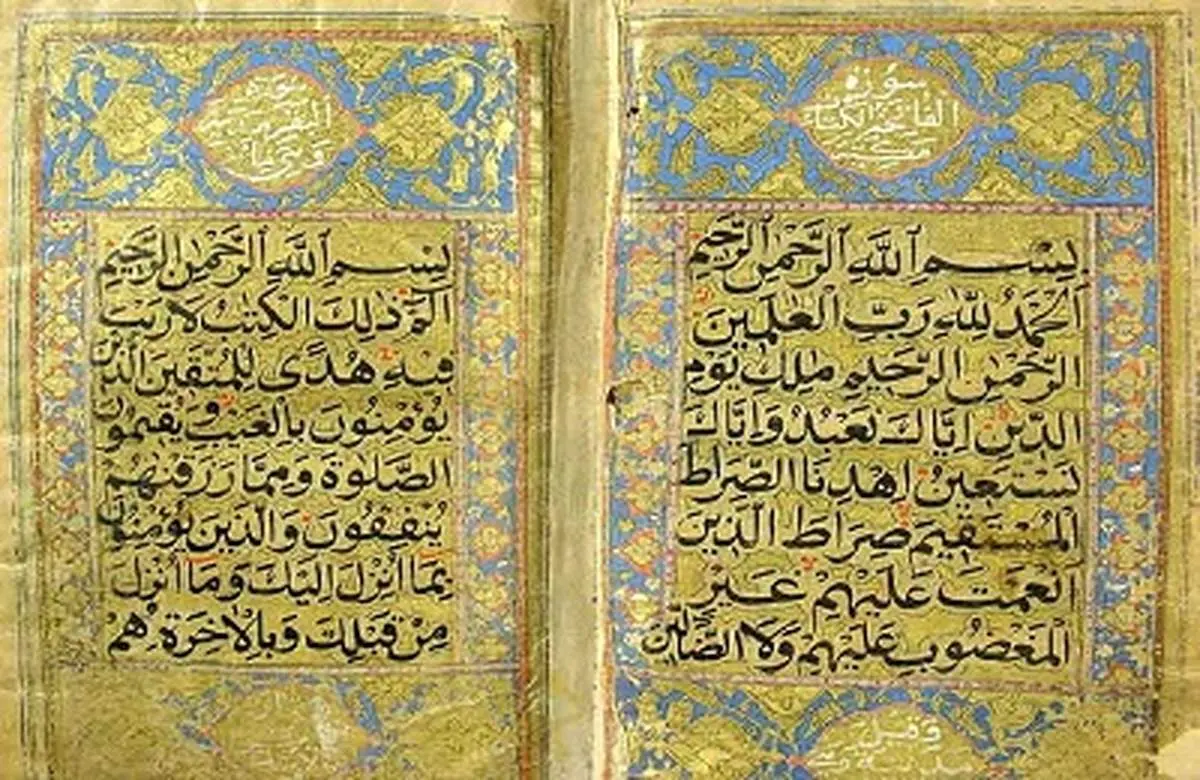 سورة
الفاتحة الكتاب
بِسْمِ ٱللَّهِ ٱلرَّحْمٰنِ ٱلرَّحِيمِ
اَلْحَمْدُ لِلّٰهِ رَبِّ الْعٰلَمِينَ
الرَّحْمٰنِ الرَّحِيمِ مٰلِكِ يَوْمِ
الدِّينِ اِيَّاكَ نَعْبُدُ وَاِيَّاكَ
نَسْتَعِينُ اِهْدِنَا الصِّرَاطَ
الْمُسْتَقِيمَ صِرَاطَ الَّذِينَ
اَنْعَمْتَ عَلَيْهِمْ غَيْرِ
الْمَغْضُوبِ عَلَيْهِمْ وَلَا الضَّالِّينَ
سورة
البقرة
بِسْمِ ٱللَّهِ ٱلرَّحْمٰنِ الرَّحِيمِ
الٓمٓ ذٰلِكَ الْكِتٰبُ لَا رَيْبَ
فِيهِ هُدًى لِلْمُتَّقِينَ الَّذِينَ
يُؤْمِنُونَ بِالْغَيْبِ وَيُقِيمُونَ
الصَّلٰوةَ وَمِمَّا رَزَقْنٰهُمْ
يُنْفِقُونَ وَالَّذِينَ يُؤْمِنُونَ
بِمَا اُنْزِلَ اِلَيْكَ وَمَا اُنْزِلَ
مِنْ قَبْلِكَ وَبِالْاٰخِرَةِ هُمْ